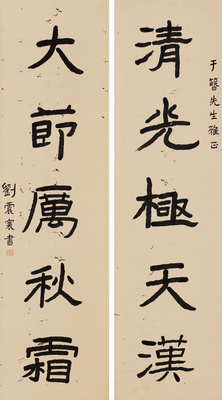 于簪先生雅正
清光極天漢
大節厲秋霜
劉震寰書